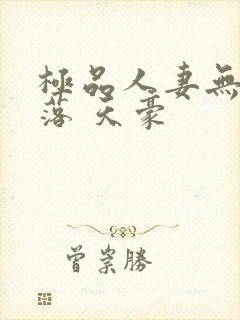 極品人妻無
落 天豪
曾崇勝